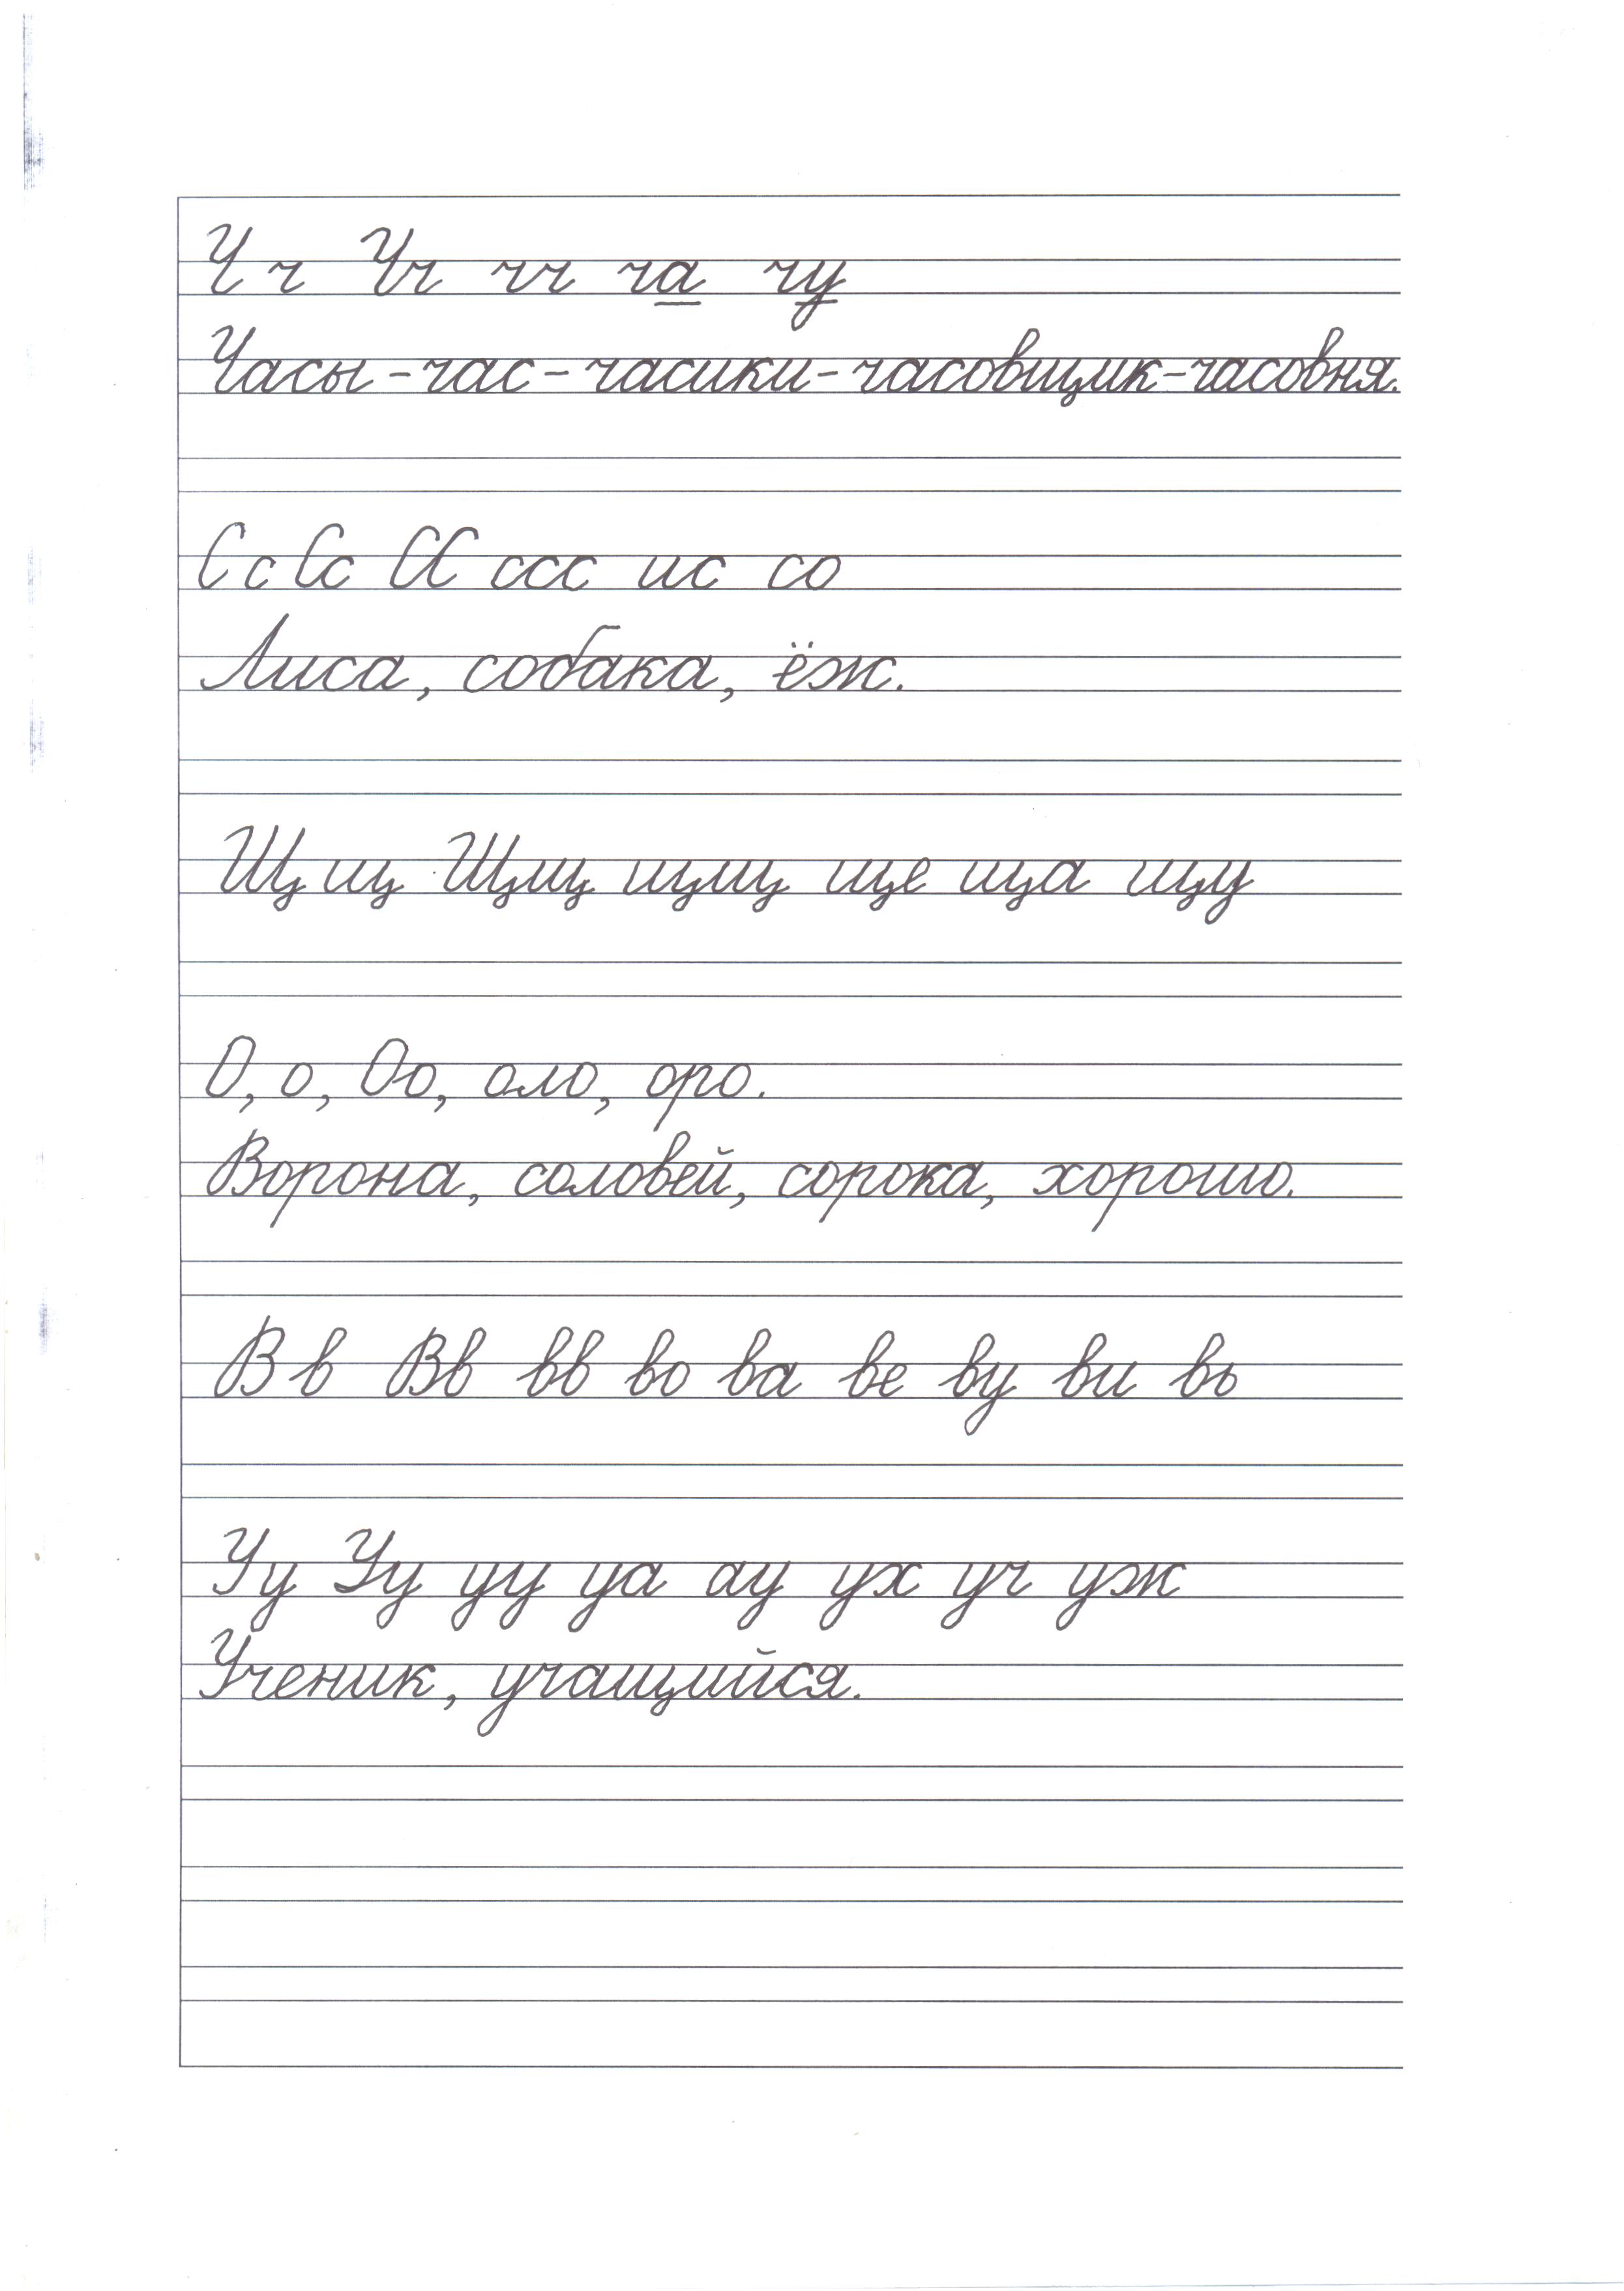 Ч ч Чч чч ча чу
Часы - час - часики - часовщик - часовня.
С с Сс СС ссс ис со
Лиса, собака, ёж.
Щ щ Щщщ щщщ ще ща щу
О, о, Оо, оло, оро.
Ворона, соловей, сорока, хорошо.
В в Вв вв во ва ве ву ви вь
Уу Уу уу уа ау ух уч уж
Ученик, учащийся.